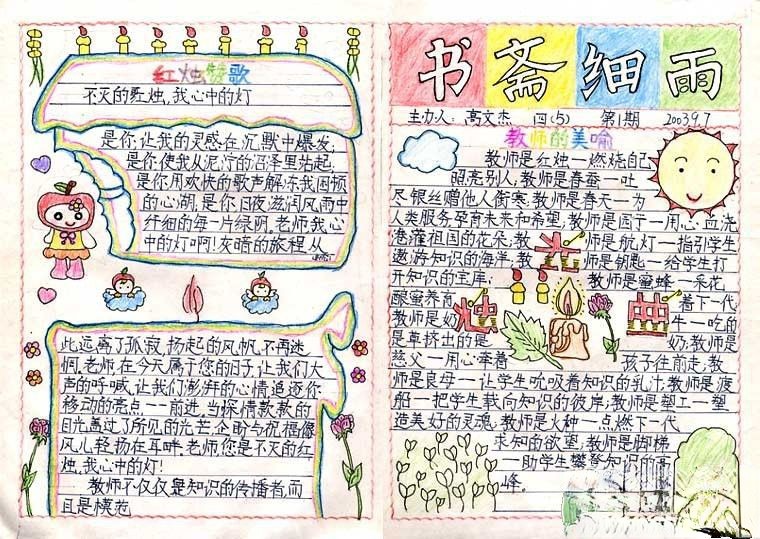 红烛颂歌
不灭的红烛,我心中的灯
是你,让我的灵感在沉默中爆发,
是你使我从泥泞的沼泽里站起,
是你用欢快的歌声解冻我困顿
的心湖,是你日夜滋润风雨中
纤细的每一片绿阴,老师,我心
中的灯啊!灰暗的旅程,从
此远离了孤寂,扬起的风帆,不再迷
惘,老师,在今天属于您的日子,让我们大
声的呼喊,让我们澎湃的心情追逐你
移动的亮点一一前进,当深情款款的
目光,高过了所见的光芒,企盼与祝福像
风儿轻扬在耳畔,老师,您是不灭的红
烛,我心中的灯!
教师不仅仅是知识的传播者,而
且是模范
书斋细雨
主办人:高文杰 四(5) 第1期 2003.9.7
教师的美喻
教师是红烛一燃烧自己
照亮别人;教师是春蚕一吐
尽银丝赠他人御寒;教师是春天一为
人类服务,孕育未来和希望;教师是园丁一用心血浇
灌祖国的花朵;教师是航灯一指引学生
遨游知识的海洋;教师是钥匙一给学生打
开知识的宝库;教师是蜜蜂一采花
酿蜜养育着下一代
教师是奶牛一吃的
是草挤出的是奶;教师是
慈父一用心牵着孩子往前走;教
师是良母一让学生吮吸着知识的乳汁;教师是渡
船一把学生载向知识的彼岸;教师是塑工一塑
造美好的灵魂;教师是火种一点燃下一代
求知的欲望;教师是脚梯
一助学生攀登知识的高
峰。